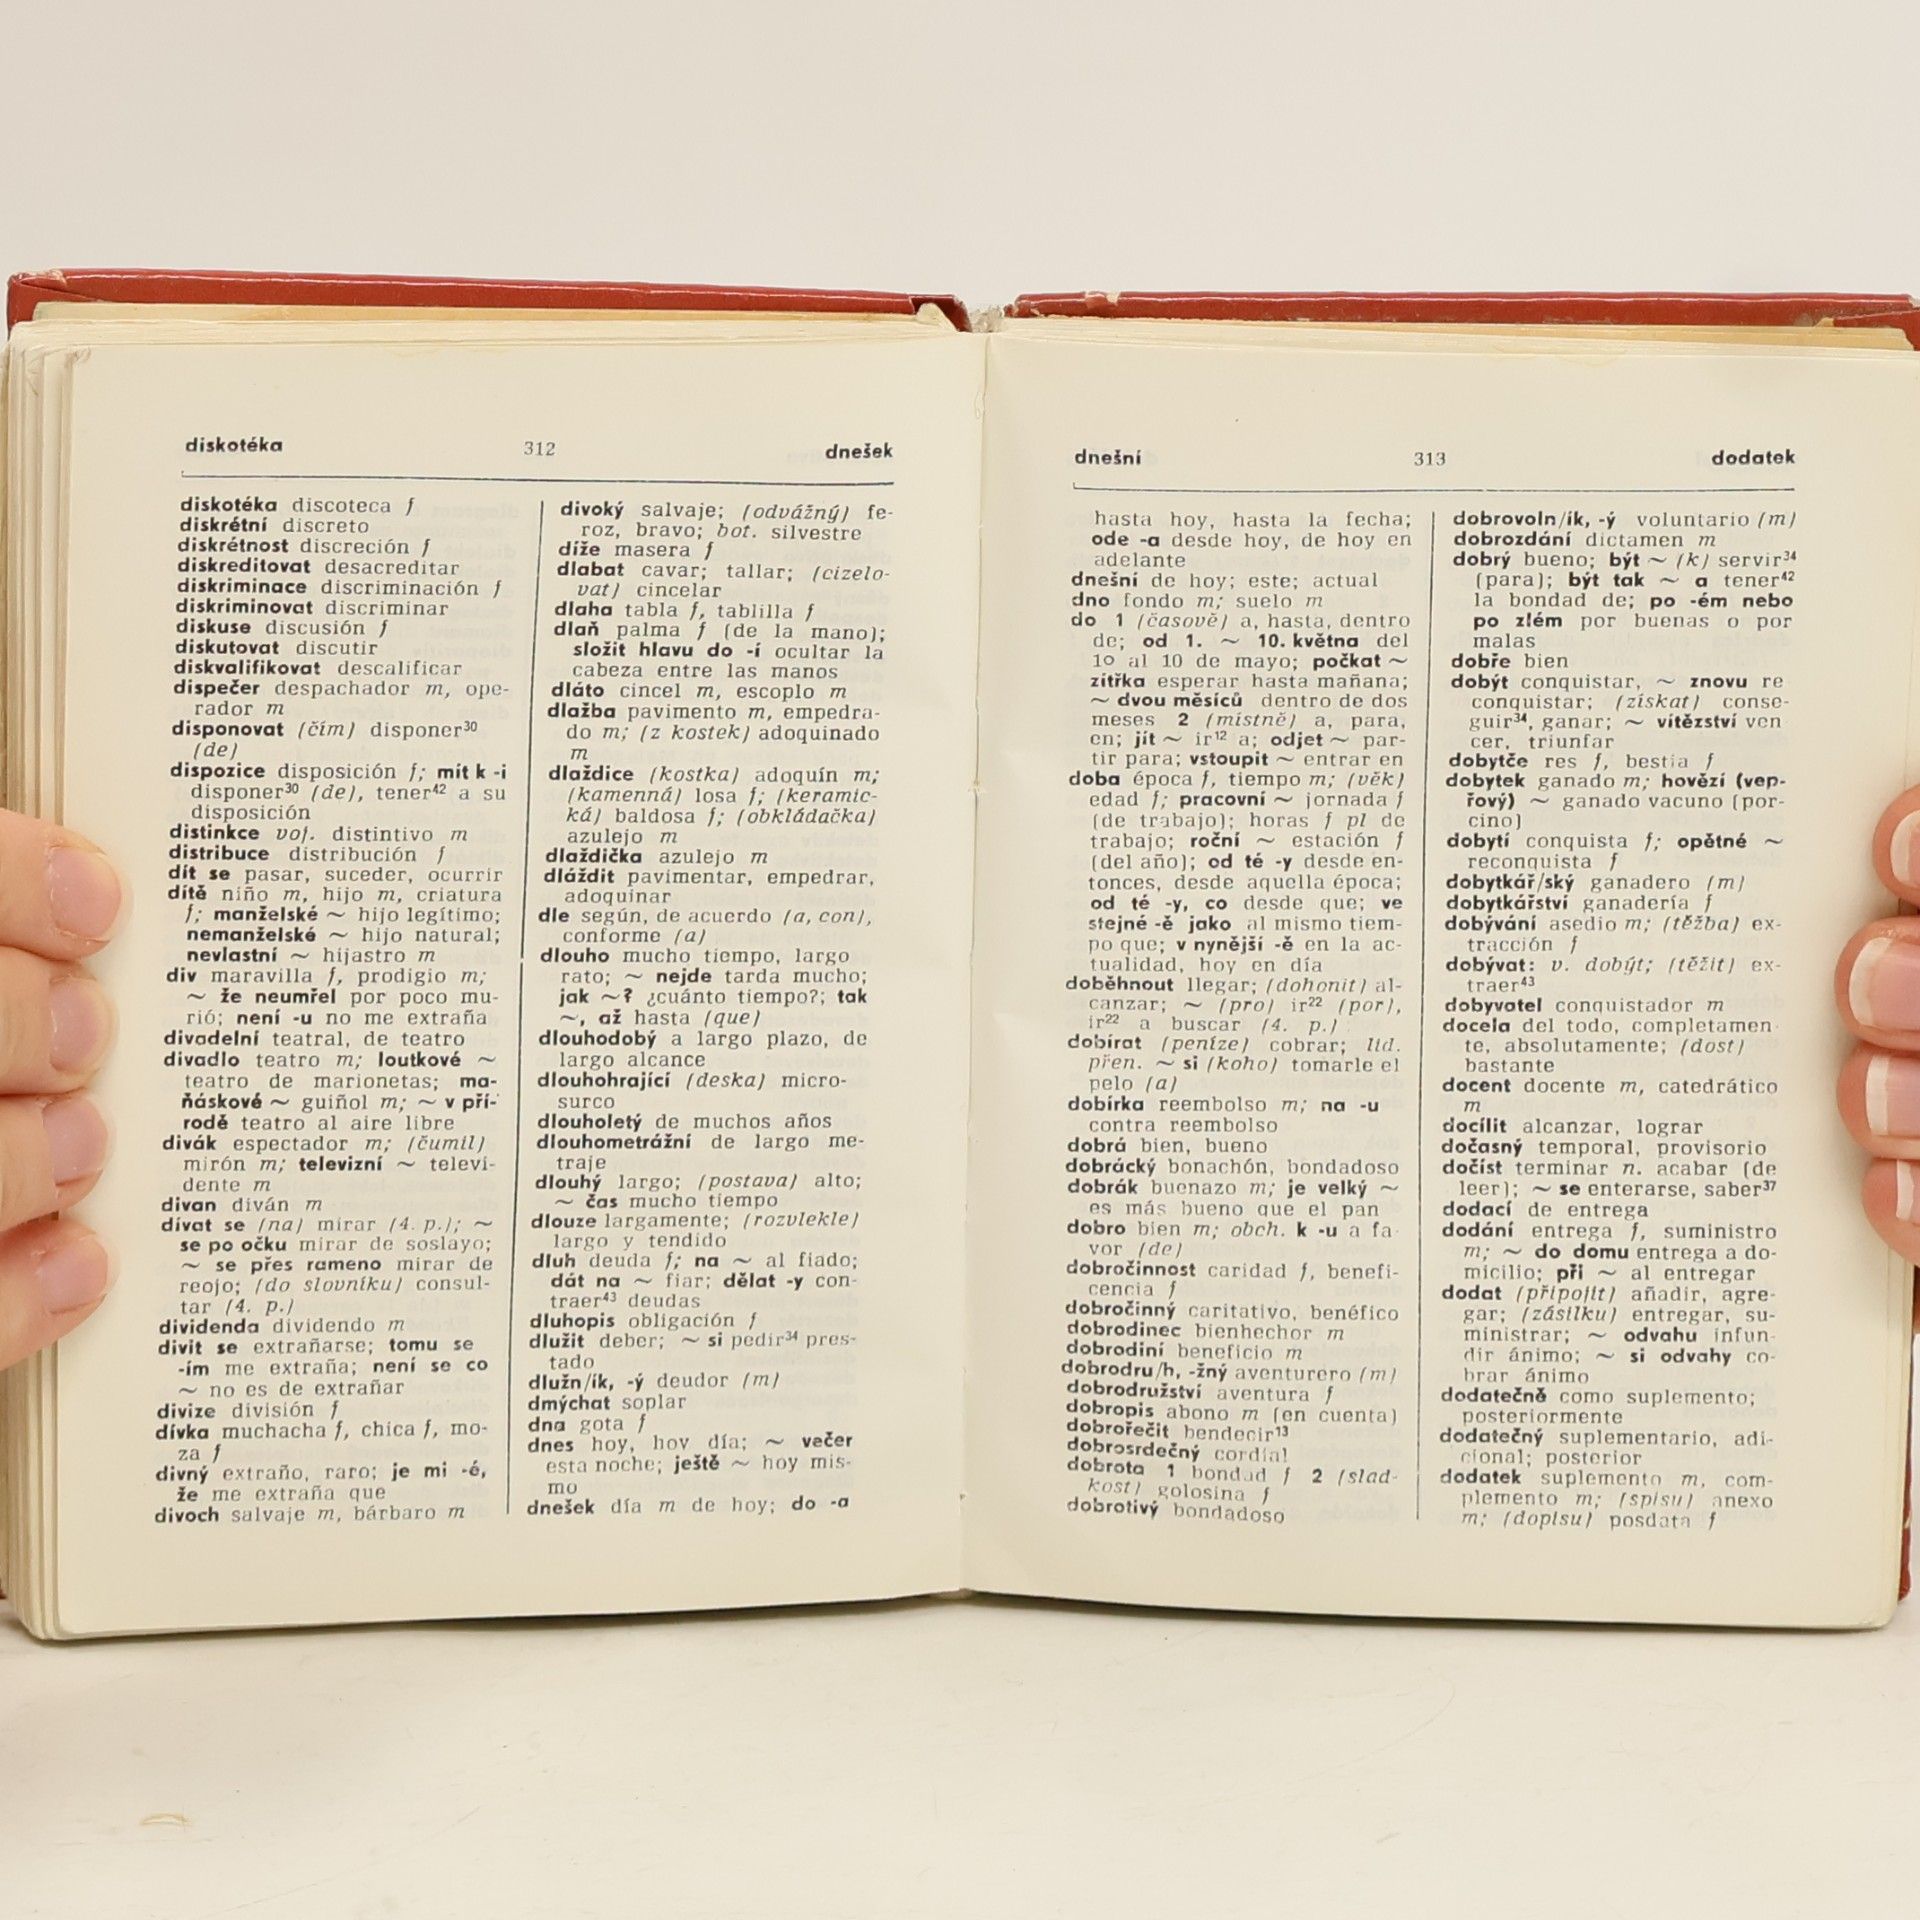 diskotéka 312 dnešek
diskotéka discoteca f
diskrétní discreto
diskrétnost discreción f
diskreditovat desacreditar
diskriminace discriminación f
diskriminovat discriminar
diskuse discusión f
diskutovat discutir
diskvalifikovat descalificar
dispečer despachador m, ope-
rador m
disponovat (čím) disponer³⁰
(de)
dispozice disposición f; mít k -i
disponer³⁰ (de), tener⁴² a su
disposición
distinkce voj. distintivo m
distribuce distribución f
dít se pasar, suceder, ocurrir
dítě niño m, hijo m, criatura
f; manželské ~ hijo legítimo;
nemanželské ~ hijo natural;
nevlastní ~ hijastro m
div maravilla f, prodigio m;
~ že neumřel por poco mu-
rió; není -u no me extraña
divadelní teatral, de teatro
divadlo teatro m; loutkové ~
teatro de marionetas; ma-
ňáskové ~ guiñol m; ~ v pří-
rodě teatro al aire libre
divák espectador m; (čumil)
mirón m; televizní ~ televi-
dente m
divan diván m
dívat se (na) mirar (4. p.); ~
se po očku mirar de soslayo;
~ se přes rameno mirar de
reojo; (do slovníku) consul-
tar (4. p.)
dividenda dividendo m
divit se extrañarse; tomu se
-ím me extraña; není se co
~ no es de extrañar
divize división f
dívka muchacha f, chica f, mo-
za f
divný extraño, raro; je mi -é,
že me extraña que
divoch salvaje m, bárbaro m
divoký salvaje; (odvážný) fe-
roz, bravo; bot. silvestre
díže masera f
dlabat cavar; tallar; (cizelo-
vat) cincelar
dlaha tabla f, tablilla f
dlaň palma f (de la mano);
složit hlavu do -í ocultar la
cabeza entre las manos
dláto cincel m, escoplo m
dlažba pavimento m, empedra-
do m; (z kostek) adoquinado
m
dlaždice (kostka) adoquín m;
(kamenná) losa f; (keramic-
ká) baldosa f; (obkládačka)
azulejo m
dlaždička azulejo m
dláždit pavimentar, empedrar,
adoquinar
dle según, de acuerdo (a, con),
conforme (a)
dlouho mucho tiempo, largo
rato; ~ nejde tarda mucho;
jak ~? ¿cuánto tiempo?; tak
~, až hasta (que)
dlouhodobý a largo plazo, de
largo alcance
dlouhohrající (deska) micro-
surco
dlouholetý de muchos años
dlouhometrážní de largo me-
traje
dlouhý largo; (postava) alto;
~ čas mucho tiempo
dlouze largamente; (rozvlekle)
largo y tendido
dluh deuda f; na ~ al fiado;
dát na ~ fiar; dělat -y con-
traer⁴³ deudas
dluhopis obligación f
dlužit deber; ~ si pedir³⁴ pres-
tado
dlužn/ík, -ý deudor (m)
dmýchat soplar
dna gota f
dnes hoy, hoy día; ~ večer
esta noche; ještě ~ hoy mis-
mo
dnešek día m de hoy; do -a
dnešní 313 dodatek
hasta hoy, hasta la fecha;
ode -a desde hoy, de hoy en
adelante
dnešní de hoy; este; actual
dno fondo m; suelo m
do 1 (časově) a, hasta, dentro
de; od 1. ~ 10. května del
1o al 10 de mayo; počkat ~
zítřka esperar hasta mañana;
~ dvou měsíců dentro de dos
meses 2 (místně) a, para,
en; jít ~ ir¹² a; odjet ~ par-
tir para; vstoupit ~ entrar en
doba época f, tiempo m; (věk)
edad f; pracovní ~ jornada f
(de trabajo); horas f pl de
trabajo; roční ~ estación f
(del año); od té -y desde en-
tonces, desde aquella época;
od té -y, co desde que; ve
stejné -ě jako al mismo tiem-
po que; v nynější -ě en la ac-
tualidad, hoy en día
doběhnout llegar; (dohonit) al-
canzar; ~ (pro) ir²² (por),
ir²² a buscar (4. p.)
dobírat (peníze) cobrar; lid.
přen. ~ si (koho) tomarle el
pelo (a)
dobírka reembolso m; na -u
contra reembolso
dobrá bien, bueno
dobrácký bonachón, bondadoso
dobrák buenazo m; je velký ~
es más bueno que el pan
dobro bien m; obch. k -u a fa-
vor (de)
dobročinnost caridad f, benefi-
cencia f
dobročinný caritativo, benéfico
dobrodinec bienhechor m
dobrodiní beneficio m
dobrodru/h, -žný aventurero (m)
dobrodružství aventura f
dobropis abono m (en cuenta)
dobrořečit bendecir¹³
dobrosrdečný cordial
dobrota 1 bondad f 2 (slad-
kost) golosina f
dobrotivý bondadoso
dobrovoln/ík, -ý voluntario (m)
dobrozdání dictamen m
dobrý bueno; být ~ (k) servir³⁴
(para); být tak ~ a tener⁴²
la bondad de; po -ém nebo
po zlém por buenas o por
malas
dobře bien
dobýt conquistar, ~ znovu re
conquistar; (získat) conse-
guir³⁴, ganar; ~ vítězství ven
cer, triunfar
dobytče res f, bestia f
dobytek ganado m; hovězí (vep-
řový) ~ ganado vacuno (por-
cino)
dobytí conquista f; opětné ~
reconquista f
dobytkář/ský ganadero (m)
dobytkářství ganadería f
dobývání asedio m; (těžba) ex-
tracción f
dobývat: v. dobýt; (těžit) ex-
traer⁴³
dobyvatel conquistador m
docela del todo, completamen-
te, absolutamente; (dost)
bastante
docent docente m, catedrático
m
docílit alcanzar, lograr
dočasný temporal, provisorio
dočíst terminar n. acabar (de
leer); ~ se enterarse, saber³⁷
dodací de entrega
dodání entrega f, suministro
m; ~ do domu entrega a do-
micilio; při ~ al entregar
dodat (připojit) añadir, agre-
gar; (zásilku) entregar, su-
ministrar; ~ odvahu infun-
dir ánimo; ~ si odvahy co-
brar ánimo
dodatečně como suplemento;
posteriormente
dodatečný suplementario, adi-
cional; posterior
dodatek suplemento m, com-
plemento m; (spisu) anexo
m; (dopisu) posdata f